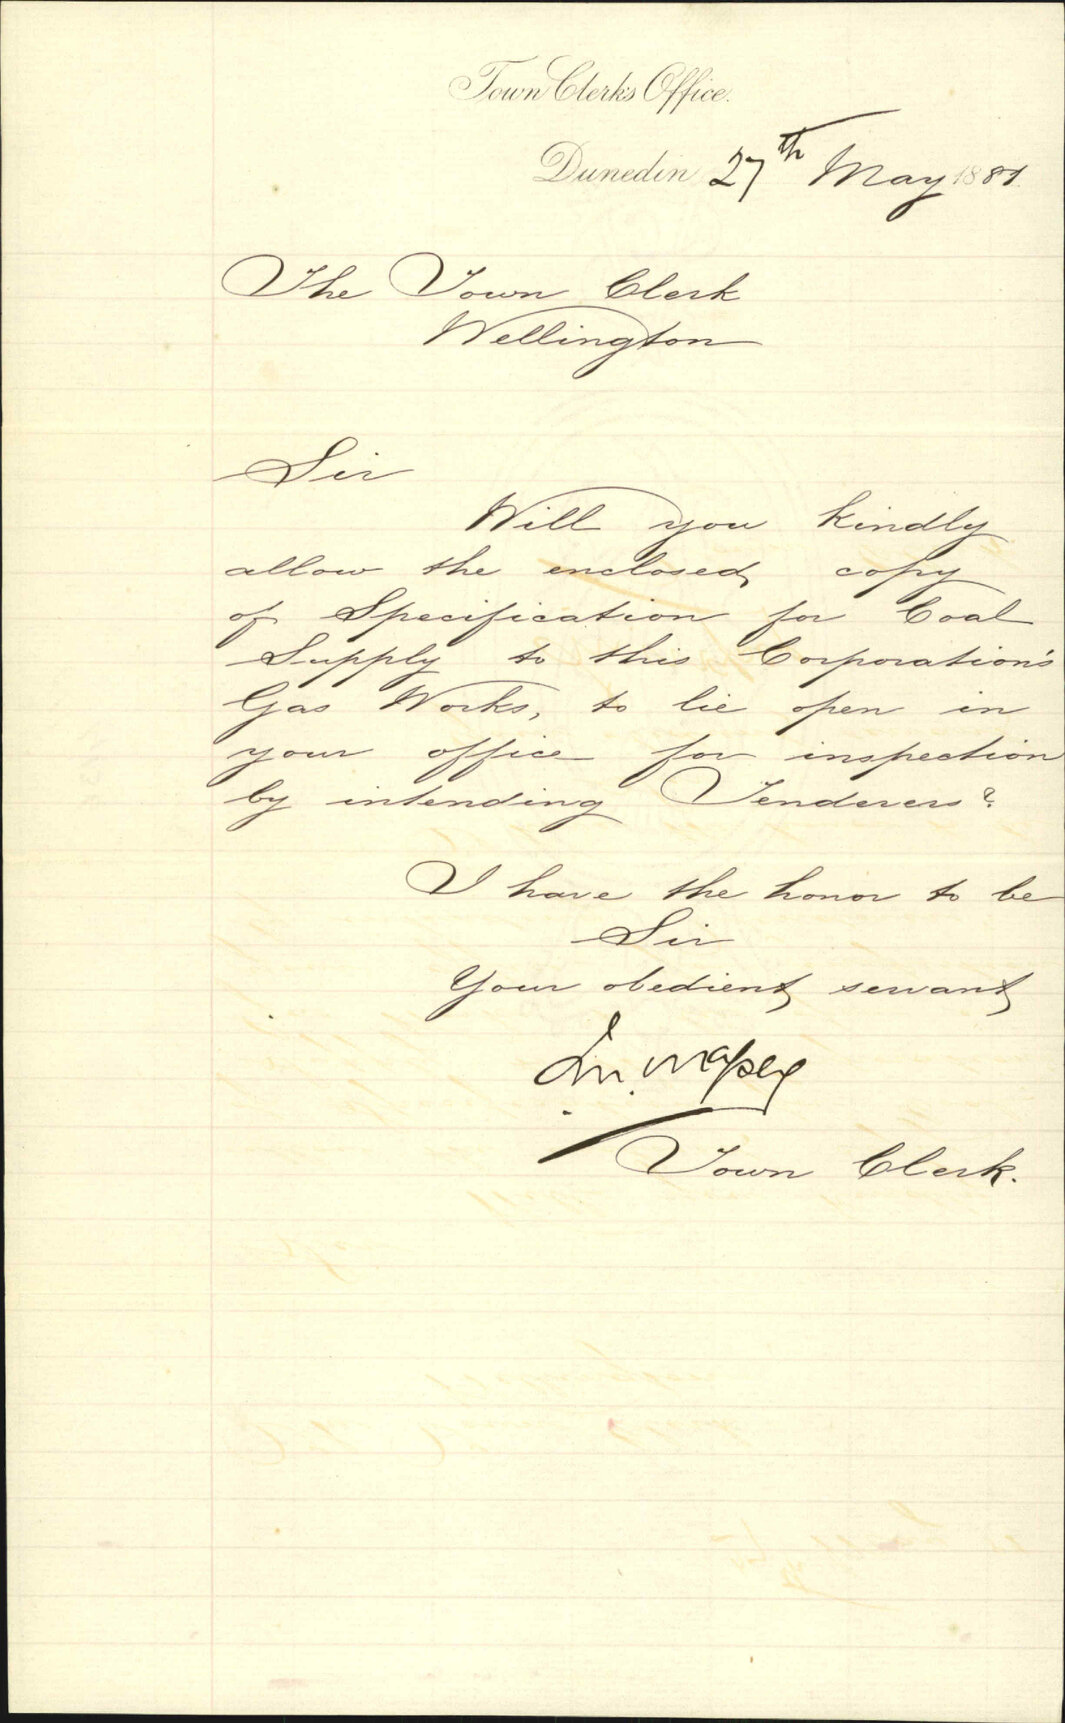 Town Clerk's Office.
Dunedin 27th May 1881
The Town Clerk
Wellington
Sir
Will you kindly
allow the enclosed copy
of Specification for Coal
Supply to this Corporation's
Gas Works, to lie open in
your office for inspection
by intending Tenderers?
I have the honor to be
Sir
Your obedient servant
Town Clerk.